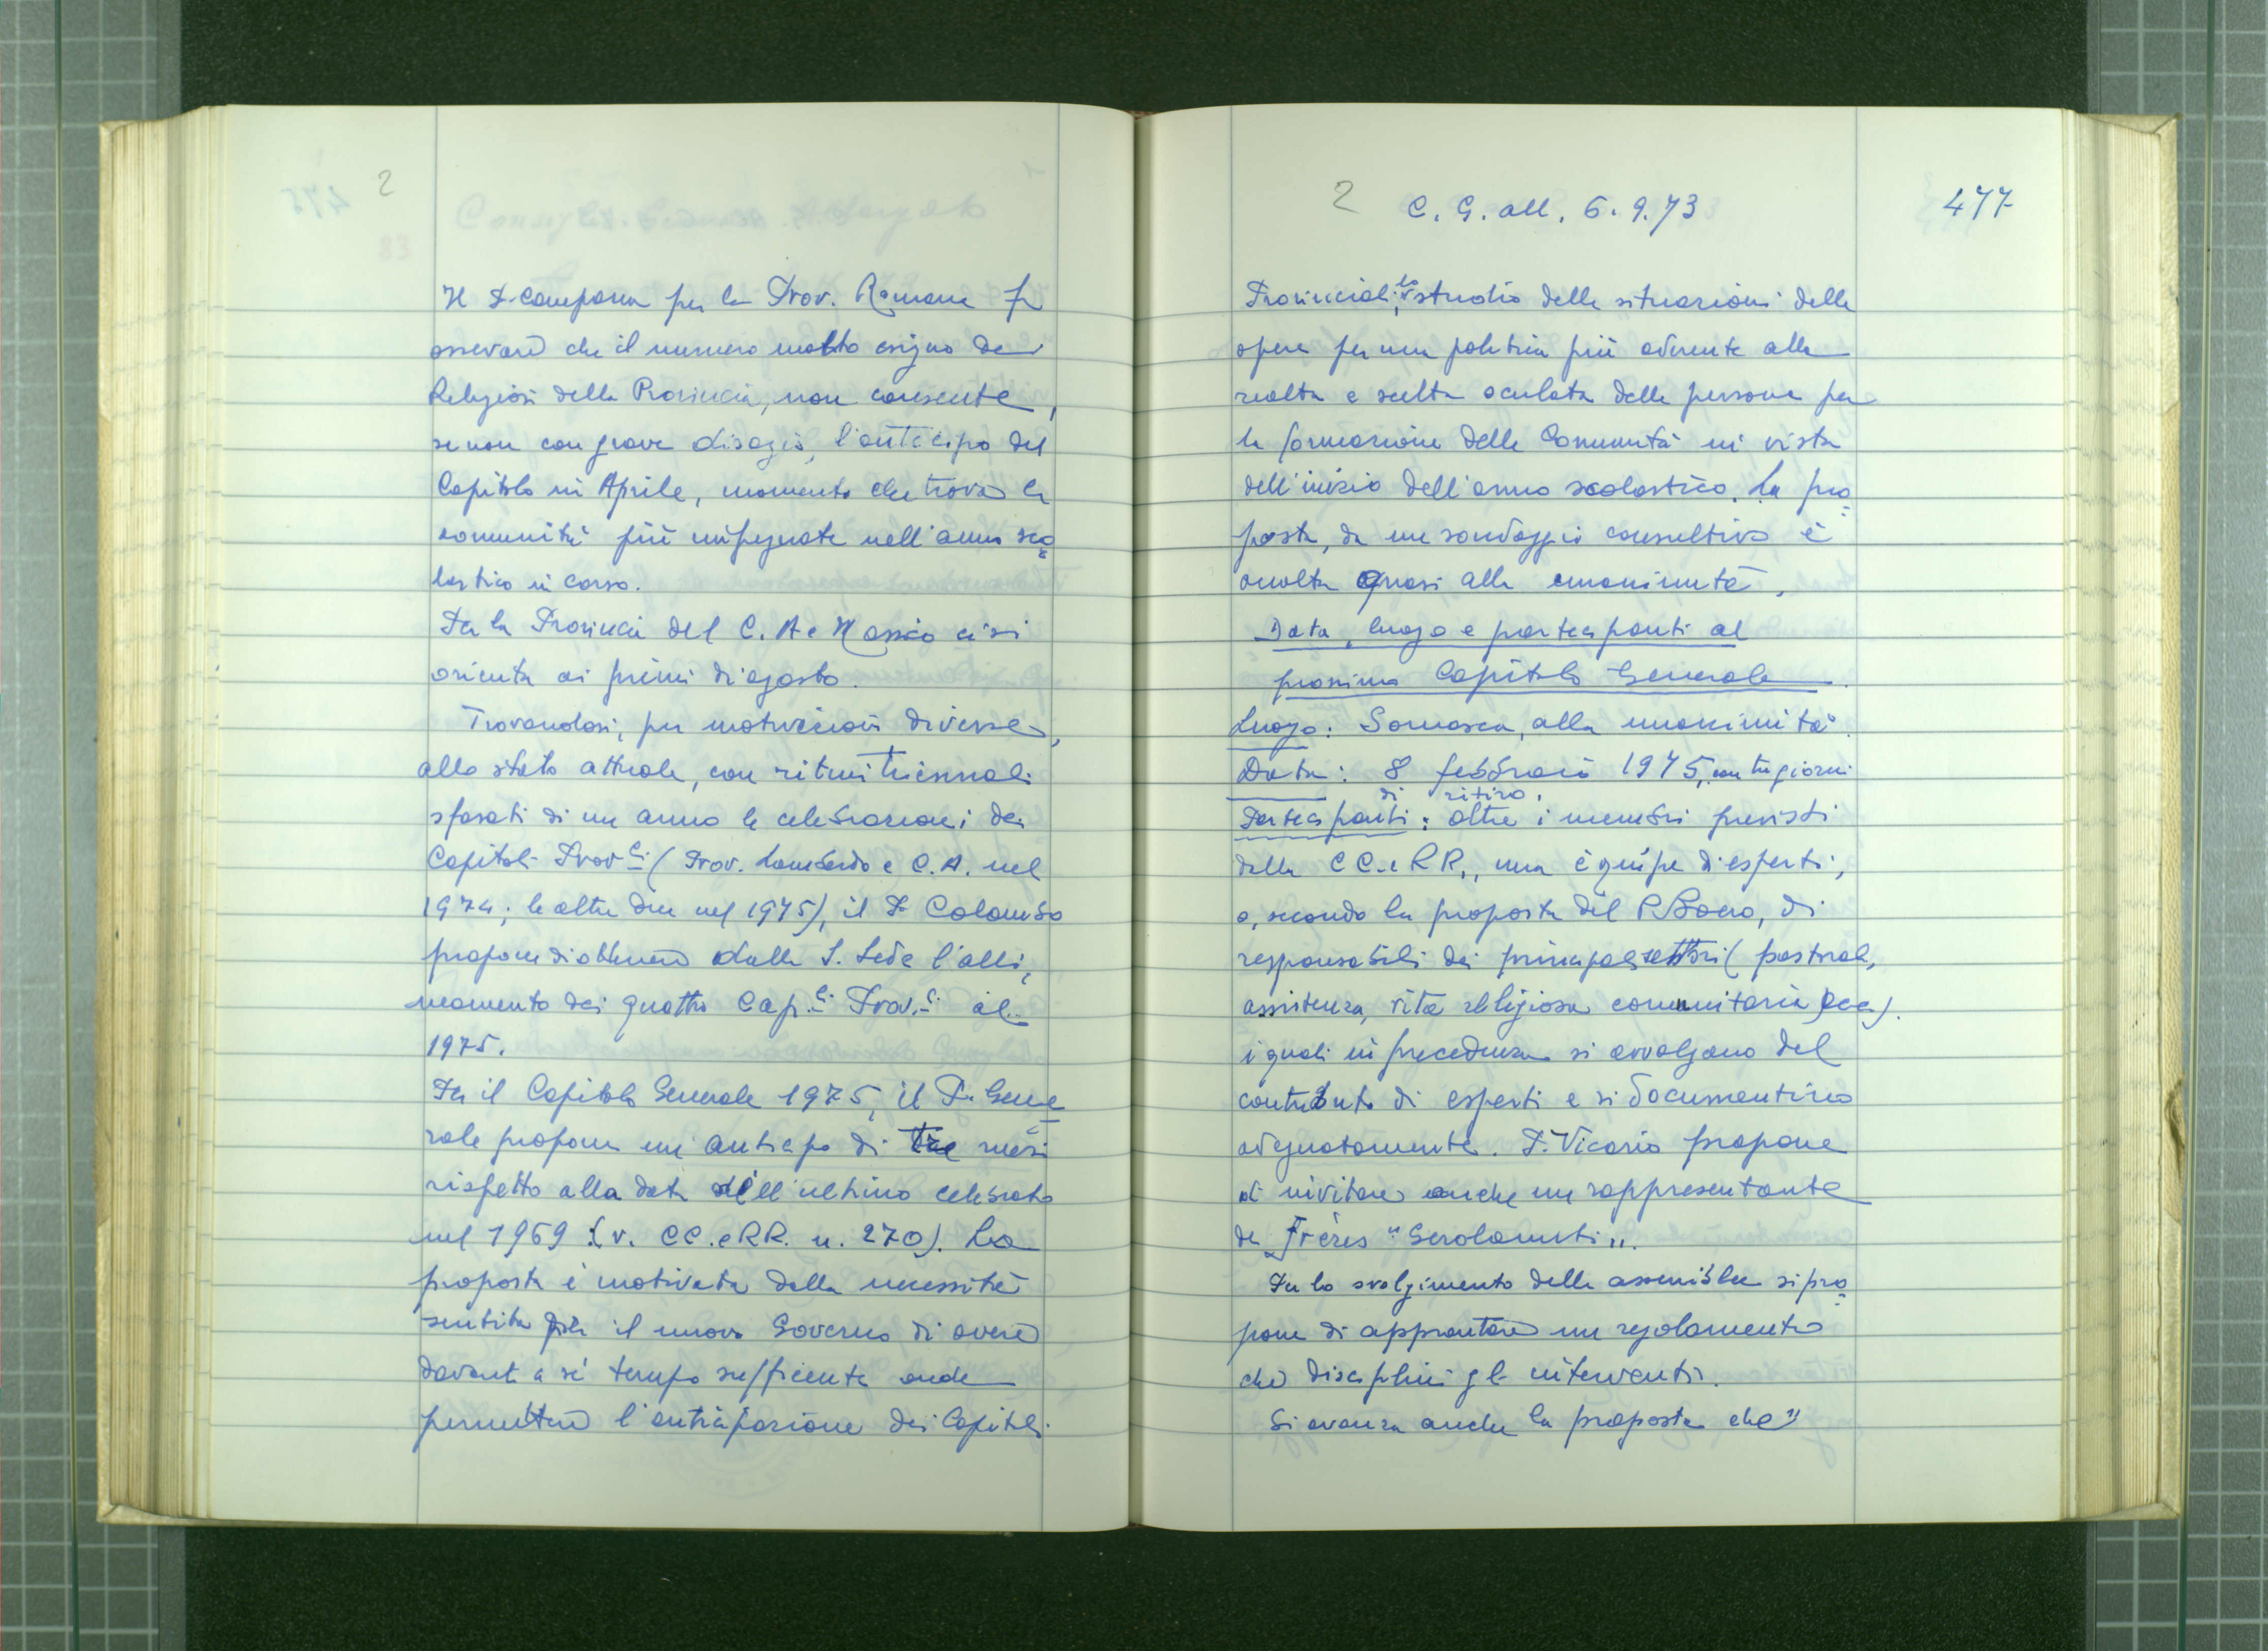 2
Il P. Campana per la Prov. Romana fa
osservare che il numero molto esiguo dei
Religiosi della Provincia, non consente,
se non con grave disagio, l'anticipo del
Capitolo in Aprile, momento che trova le
comunità più impegnate nell'anno sco=
lastico in corso.
Per la Provincia del C. A e Messico ci si
orienta ai primi di agosto.
Trovandosi, per motivazioni diverse,
allo stato attuale, con ritmi triennali
sfasati di un anno le celebrazioni dei
Capitoli Prov.li (Prov. Lombardo e C. A. nel
1974; le altre due nel 1975), il P. Colombo
propone di ottenere dalla S. Sede l'alli=
neamento dei quattro Cap.li Prov.li al
1975.
Per il Capitolo Generale 1975, il P. Gene
rale propone un anticipo di tre mesi
rispetto alla data dell'ultimo celebrato
nel 1969 (v. CC. e RR. n. 270). La
proposta è motivata dalla necessità
sentita per il nuovo Governo di avere
davanti a sé tempo sufficiente onde
permettere l'anticipazione dei Capitoli
2 C. G. all. 6. 9. 73 477
Provinciali, lo studio delle situazioni delle
opere per una politica più aderente alla
realtà e scelta oculata delle persone per
la formazione delle Comunità in vista
dell'inizio dell'anno scolastico. La pro=
posta, da un sondaggio consultivo è
accolta quasi alla unanimità.
Data, luogo e partecipanti al
prossimo Capitolo Generale.
Luogo: Somasca, alla unanimità.
Data: 8 febbraio 1975, con tre giorni
di ritiro.
Partecipanti: oltre i membri previsti
dalle CC. e RR., una équipe di esperti,
o, secondo la proposta del P. Boero, di
responsabili dei principali settori (pastorale,
assistenza, vita religiosa comunitaria ecc).
i quali in precedenza si avvalgano del
contributo di esperti e si documentino
adeguatamente. P. Vicario propone
di invitare anche un rappresentante
dei Frères "Gerolamiti".
Per lo svolgimento delle assemblee si pro=
pone di approntare un regolamento
che disciplini gli interventi.
Si avanza anche la proposta che